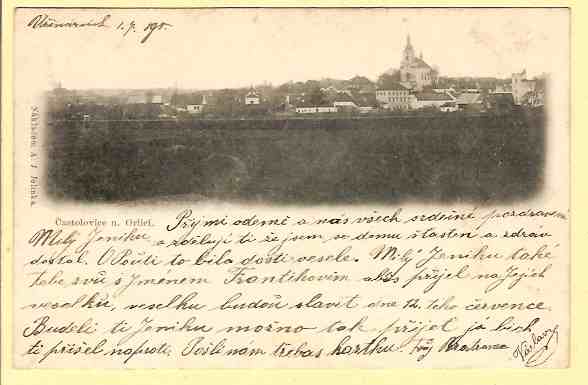 1.7. 190
Nákladem A. J. Johnka.
Častolovice n. Orlicí.
Přijmi odemě a nás všech srdečné pozdravení
Milý Jeniku a zděluji ti že jsem se domu štastně a zdráv
dostal. O Pouti to bila dosti vesele. Milý Jeniku také
tebe zvu s Jmenem Frantíkovim abis přijel na Jejich
veselku, veselku budou slavit dne 12. teho července.
Budeli ti Jeniku možno tak přijeť já bich
ti přišel naproti. Pošli nám třebas kartku. Tvůj
Václav